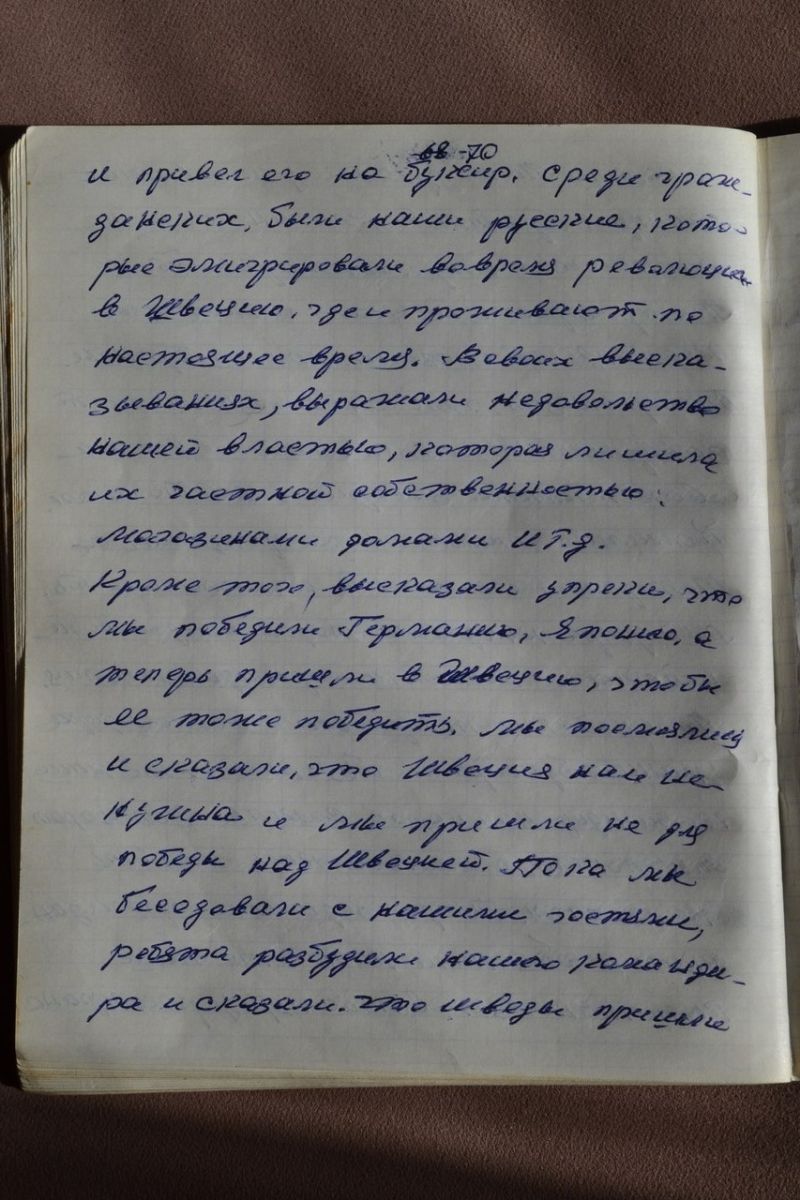 68-70
и привел его на буксир. Среди граж-
занских, были наши русские, кото-
рые эмигрировали вовремя революции
в Швецию, где и проживают по
настоящее время. В своих выска-
зываниях, выражали недовольство
нашей властью, которая лишила
их частной собственностью:
могозинами домами и т.д.
Кроме того, высказали упреки, что
мы победили Германию, Японию, а
теперь пришли в Швецию, чтобы
ее тоже победить. Мы посмеялись
и сказали, что Швеция нам не
нужна и мы пришли не для
победы над Швецией. Пока мы
беседовали с нашими гостями,
ребята разбудили нашего команди-
ра и сказали. что шведы пришли